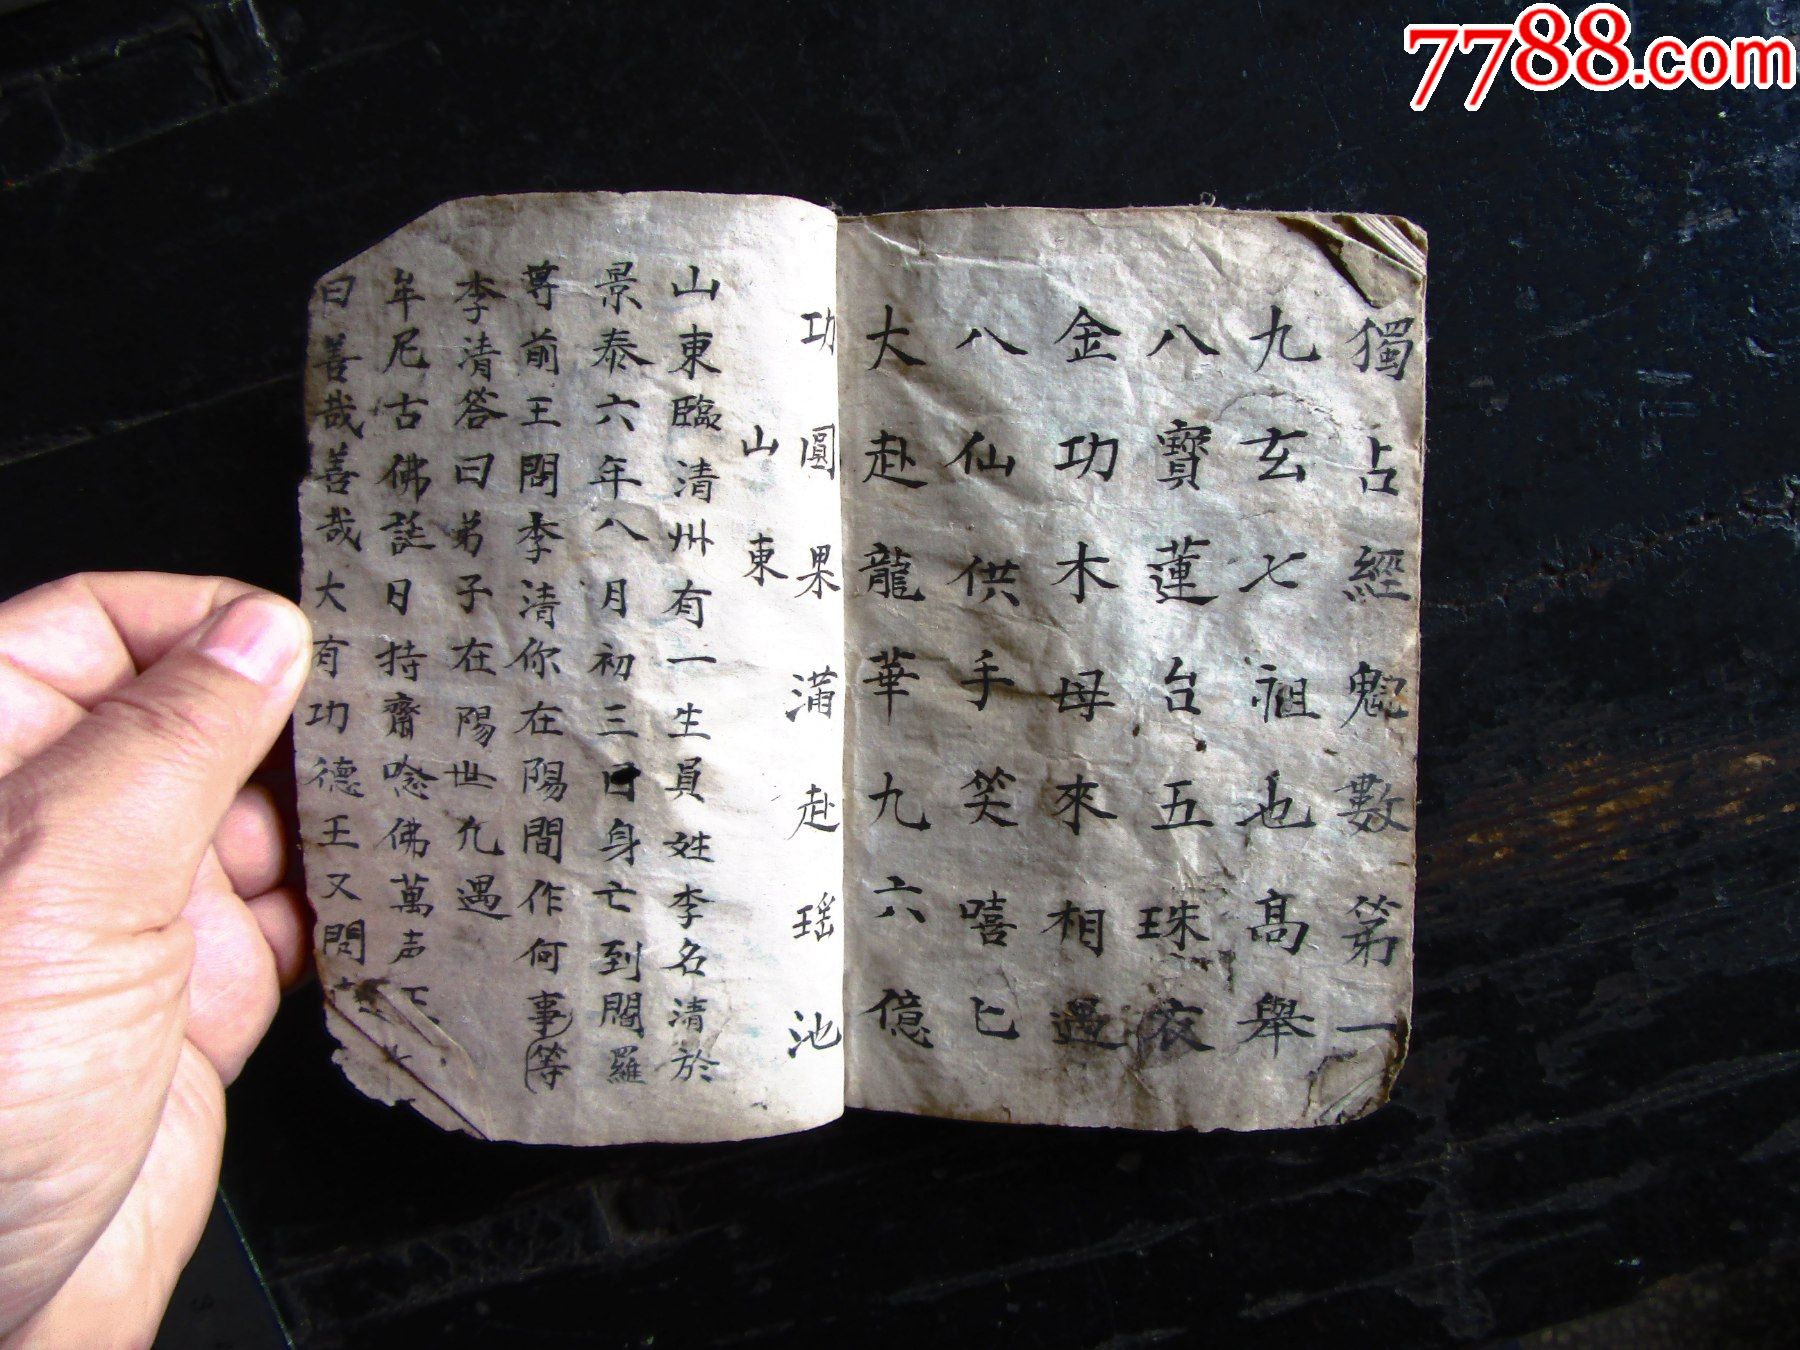 7788.com
獨占經魁數第一
九玄七祖也高舉
八寶蓮台五珠衣
金功木母來相遇
八仙供手笑嘻匕
大赴龍華九六億
功圓果滿赴瑶池
山東
山東臨清州有一生員姓李名清於
景泰六年八月初三日身亡到閻羅
尊前王問李清你在陽間作何事等
李清答曰弟子在陽世九遇
牟尼古佛誕日持齋唸佛萬声不
曰善哉善哉大有功德王又問